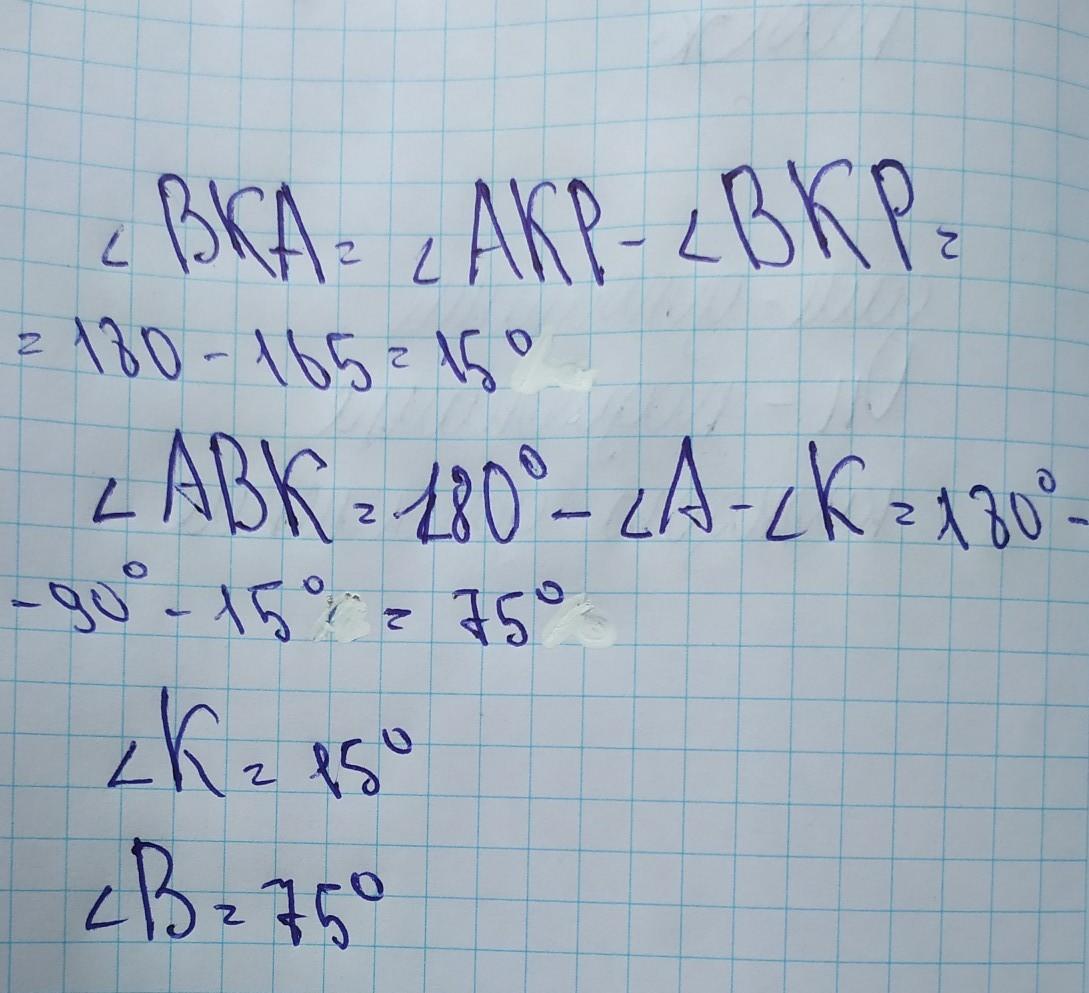 ∠BKA = ∠AKP - ∠BKP =
= 180 - 165 = 15°
∠ABK = 180° - ∠A - ∠K = 180° -
- 90° - 15° = 75°
∠K = 15°
∠B = 75°